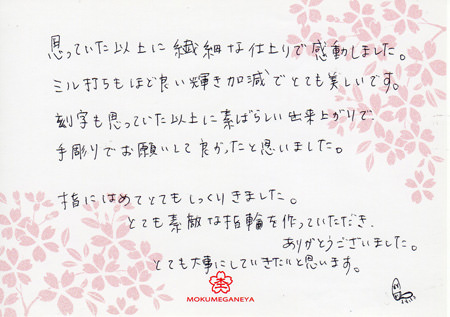 思っていた以上に繊細な仕上りで感動しました。
ミル打ちもほど良い輝き加減でとても美しいです。
刻字も思っていた以上に素ばらしい出来上がりで、
手彫りでお願いして良かったと思いました。
指にはめてとてもしっくりきました。
とても素敵な指輪を作っていただき、
ありがとうございました。
とても大事にしていきたいと思います。
MOKUMEGANEYA